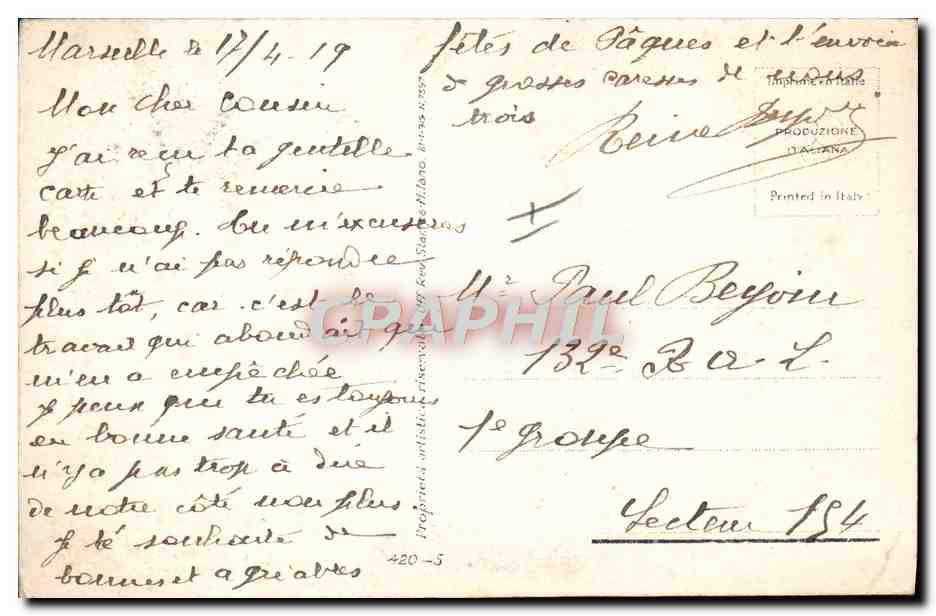 Marseille le 17/4-19
Mon cher cousin
J'ai reçu ta gentille
carte et te remercie
beaucoup. Tu m'excuseras
si je n'ai pas répondre
plus tôt, car c'est le
travail qui abondait qui
m'en a empêchée
Je pense que tu es toujours
en bonne santé et il
n'y a pas trop à dire
de notre côté non plus
Je té souhaite de
bonnes et agréables
fêtes de Pâques et t'envoie
de grosses caresses de nous
trois
Reine
Imprimé en Italie
PRODUZIONE
ITALIANA
Printed in Italy
Mr Paul Beyoin
132e R. a. L.
1e groupe
Secteur 154
Proprietà artistica riservata
Milano
420-5
CPAPHIL